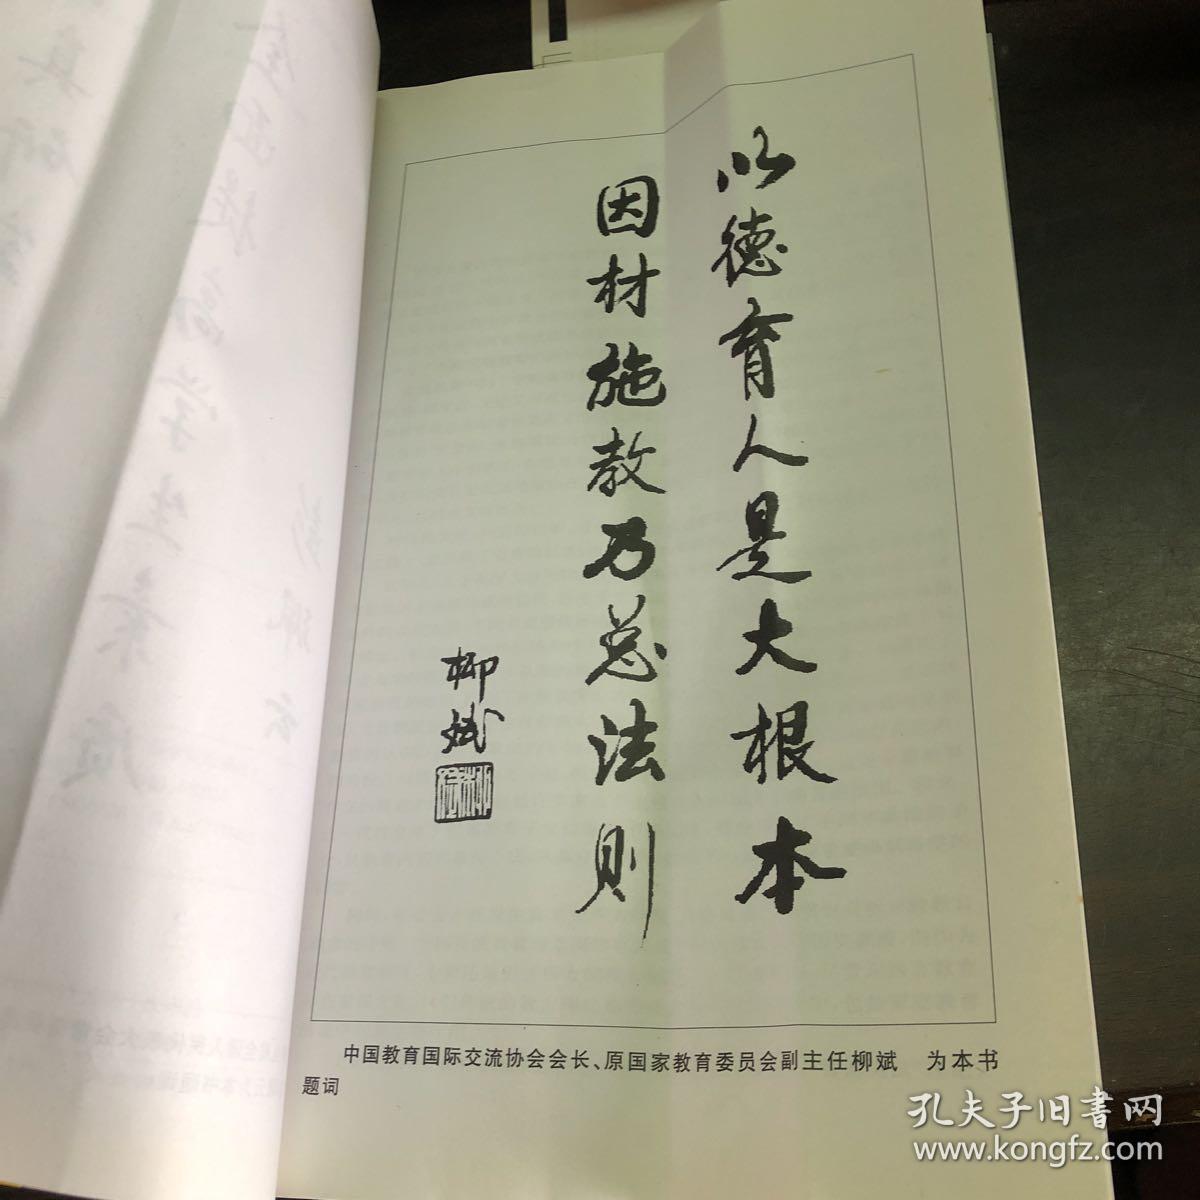 以德育人是大根本
因材施教乃总法则
柳斌
中国教育国际交流协会会长、原国家教育委员会副主任柳斌　为本书
题词
孔夫子旧书网
www.kongfz.com